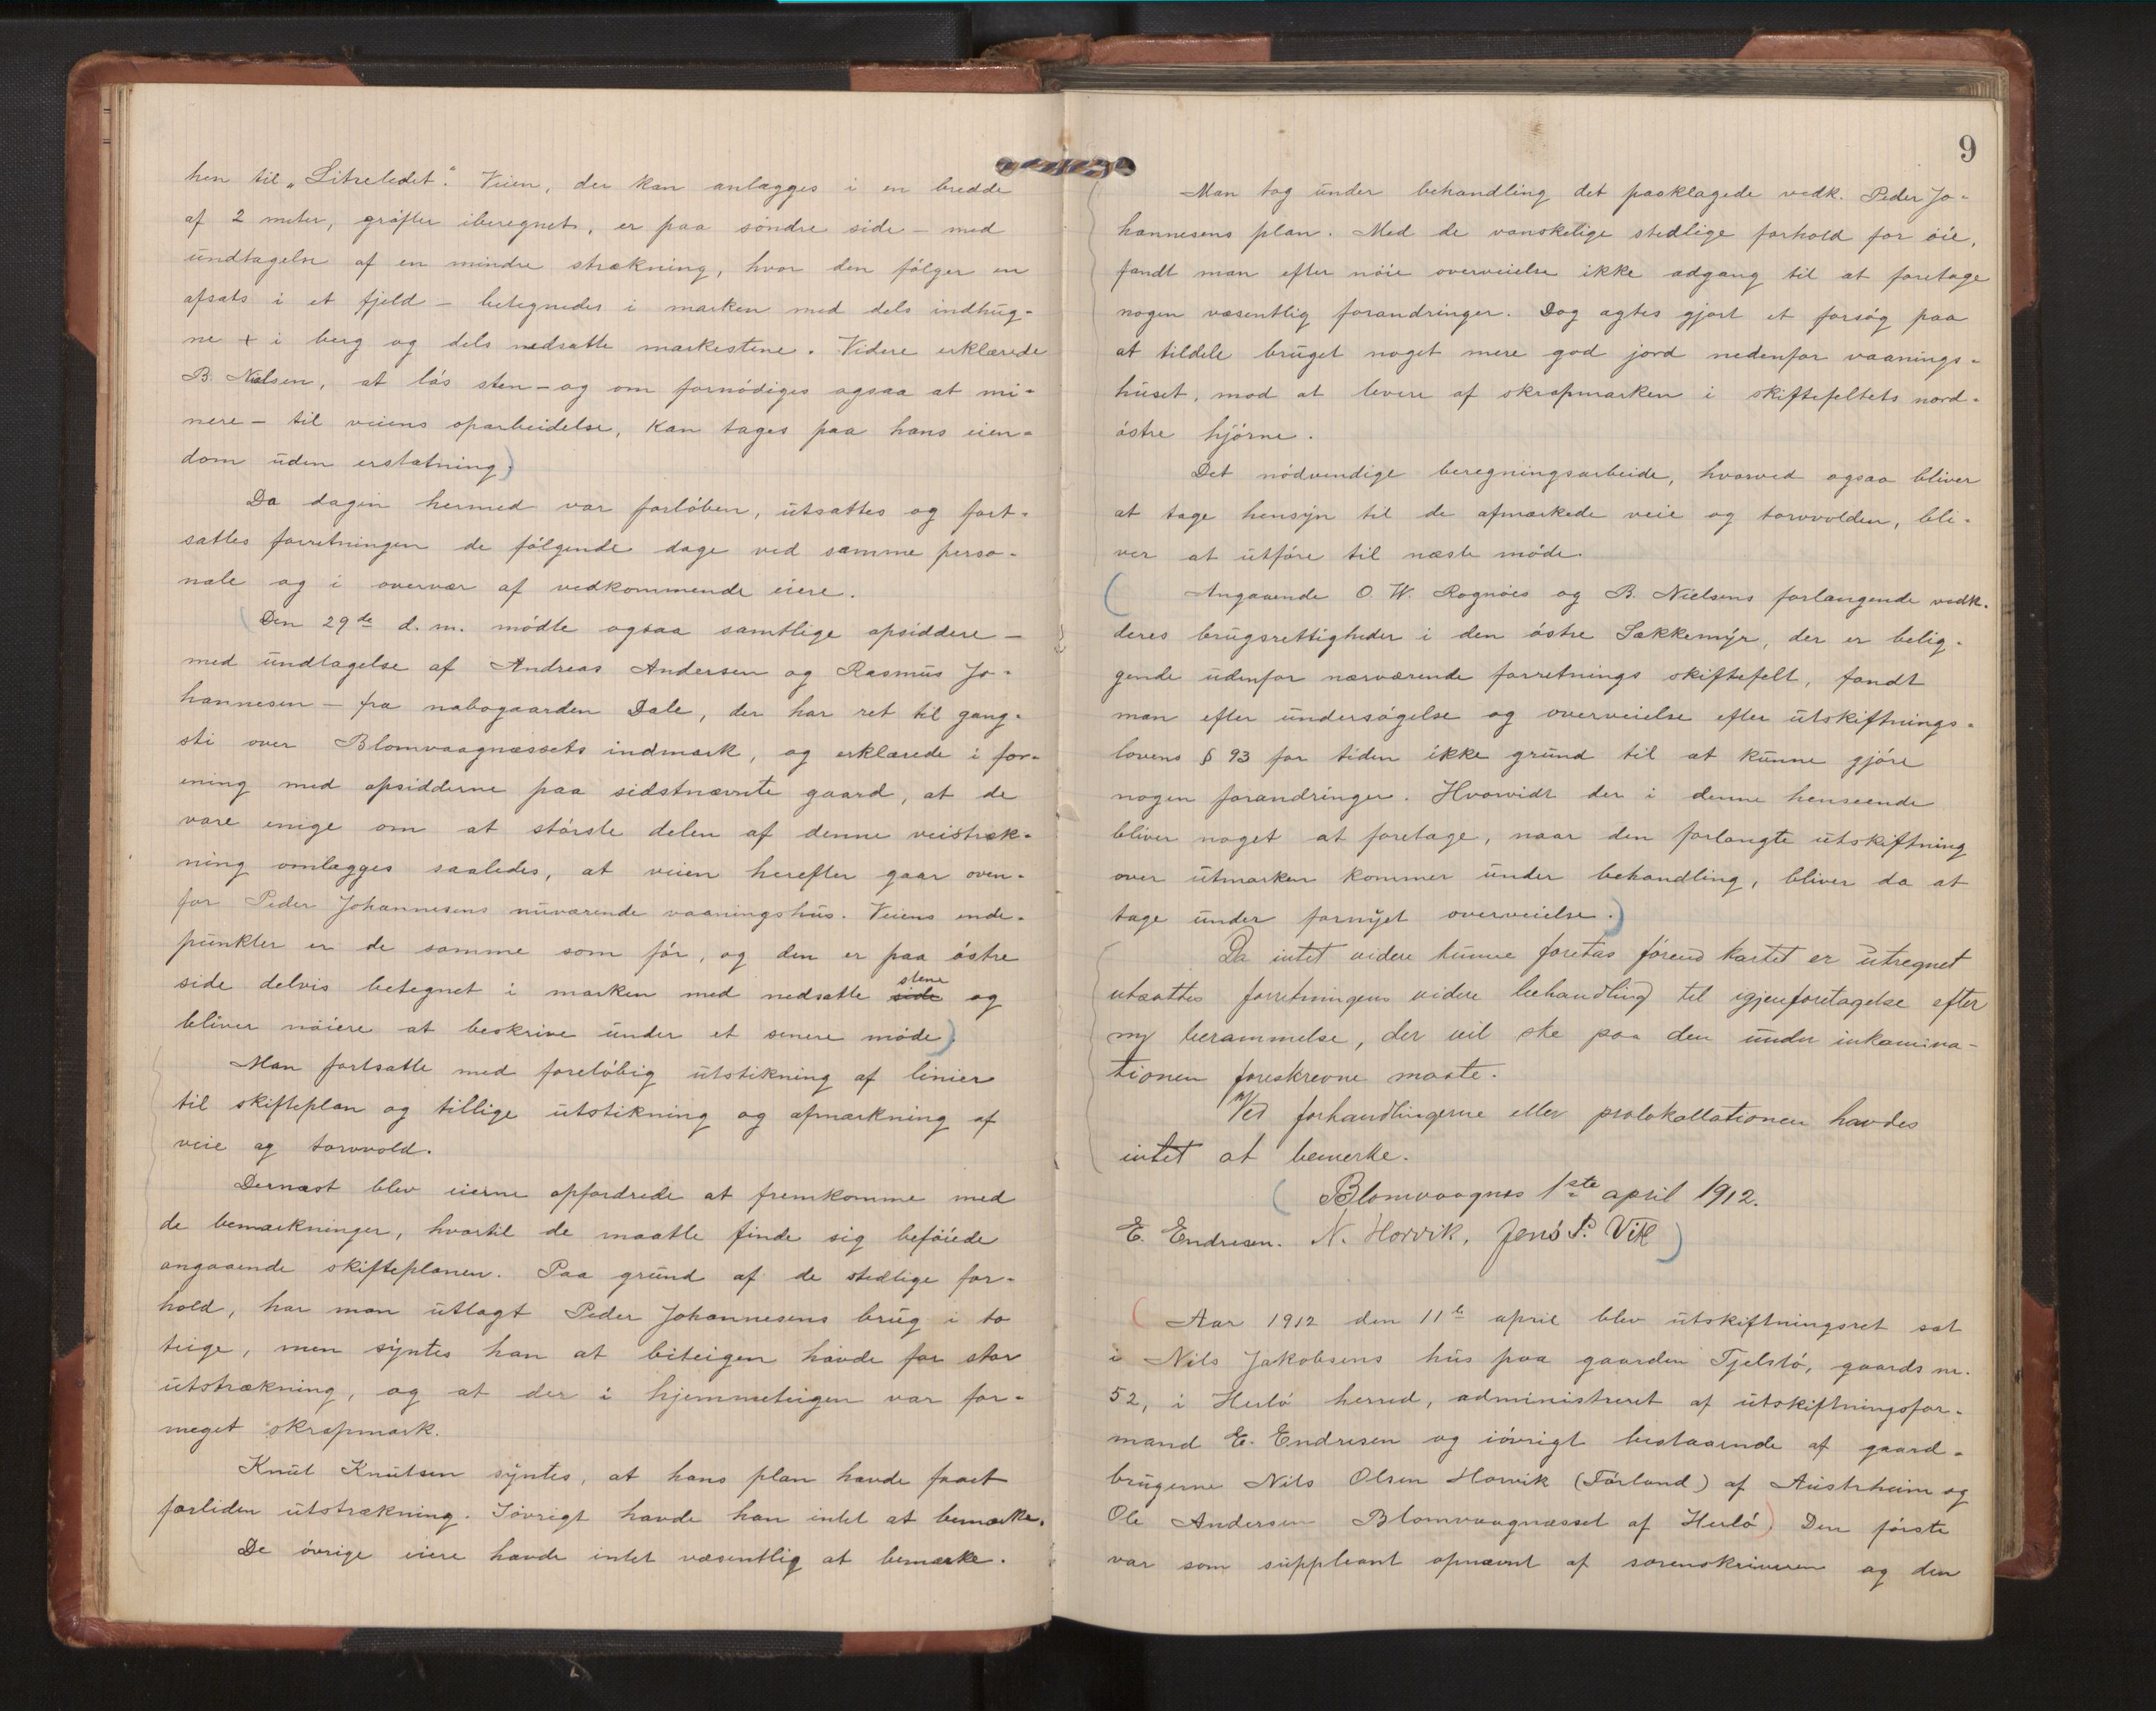 hen til „Litleledet“. Veien, der kan anlægges i en bredde
af 2 meter, grøfter iberegnet, er paa søndre side – med
undtagelse af en mindre strækning, hvor den følger en
afsats i et fjeld – betegnedes i marken med dels indhug-
ne + i berg og dels nedsatte markestene. Videre erklærede
B. Nielsen, at løs sten – og om fornødiges ogsaa at mi-
nere – til veiens oparbeidelse, kan tages paa hans eien-
dom uden erstatning.)
Da dagen hermed var forløben, utsattes og fort-
sattes forretningen de følgende dage ved samme perso-
nale og i overvær af vedkommende eiere.
(Den 29de d. m. mødte ogsaa samtlige opsiddere –
med undtagelse af Andreas Andersen og Rasmus Jo-
hannesen – fra nabogaarden Dale, der har ret til gang-
sti over Blomvaagnæssets indmark, og erklærede i for-
ening med opsidderne paa sidstnævnte gaard, at de
vare enige om at største delen af denne veistræk-
ning omlægges saaledes, at veien herefter gaar oven-
for Peder Johannesens nuværende vaaningshus. Veiens ende-
punkter er de samme som før, og den er paa østre
side delvis betegnet i marken med nedsatte side stene og
bliver nøiere at beskrive under et senere møde.)
Man fortsatte med foreløbig utstikning af linier
til skifteplan og tillige utstikning og afmærkning af
veie og torvvold.
Dernæst blev eierne opfordrede at fremkomme med
de bemærkninger, hvortil de maatte finde sig beføiede
angaaende skifteplanen. Paa grund af de stedlige for-
hold, har man utlagt Peder Johannesens brug i to
teige, men syntes han at biteigen havde for stor
utstrækning, og at der i hjemmeteigen var for-
meget skrapmark.
Knut Knutsen syntes, at hans plan havde faaet
forliden utstrækning. Iøvrigt havde han intet at bemærke.
De øvrige eiere havde intet væsentlig at bemærke.
9
Man tog under behandling det paaklagede vedk. Peder Jo-
hannesens plan. Med de vanskelige stedlige forhold for øie,
fandt man efter nøie overveielse ikke adgang til at foretage
nogen væsentlig forandringer. Dog agtes gjort et forsøg paa
at tildele bruget noget mere god jord nedenfor vaanings-
huset, mod at levere af skrapmarken i skiftefeltets nord-
østre hjørne.
Det nødvendige beregningsarbeide, hvorved ogsaa bliver
at tage hensyn til de afmærkede veie og torvvolden, bli-
ver at utføre til næste møde.
(Angaaende O. W. Rognøes og B. Nielsens forlangende vedk.
deres brugsrettigheder i den østre Sækkemyr, der er belig-
gende udenfor nærværende forretnings skiftefelt, fandt
man efter undersøgelse og overveielse efter utskiftnings-
lovens § 93 for tiden ikke grund til at kunne gjøre
nogen forandringer. Hvorvidt der i denne henseende
bliver noget at foretage, naar den forlangte utskiftning
over utmarken kommer under behandling, bliver da at
tage under fornyet overveielse.)
Da intet videre kunne foretas førend kartet er utregnet
utsattes forretningens videre behandling til igjenforetagelse efter
ny berammelse, der vil ske paa den under inkamina-
tionen foreskrevne maate.
Ved forhandlingerne eller protokollationen havdes
intet at bemerke.
(Blomvaagnes 1ste april 1912.
E. Endresen. N. Horvik, Jens P. Vik)
(Aar 1912 den 11te april blev utskiftningsret sat
i Nils Jakobsens hus paa gaarden Tjelstø, gaards nr.
52, i Herlø herred, administreret af utskiftningsfor-
mand E. Endresen og iøvrigt bestaaende af gaard-
brugerne Nils Olsen Horvik (Førland) af Austrheim og
Ole Andersen Blomvaagnæsset af Herlø) Den første
var som suppleant opnævnt af sorenskriveren og den